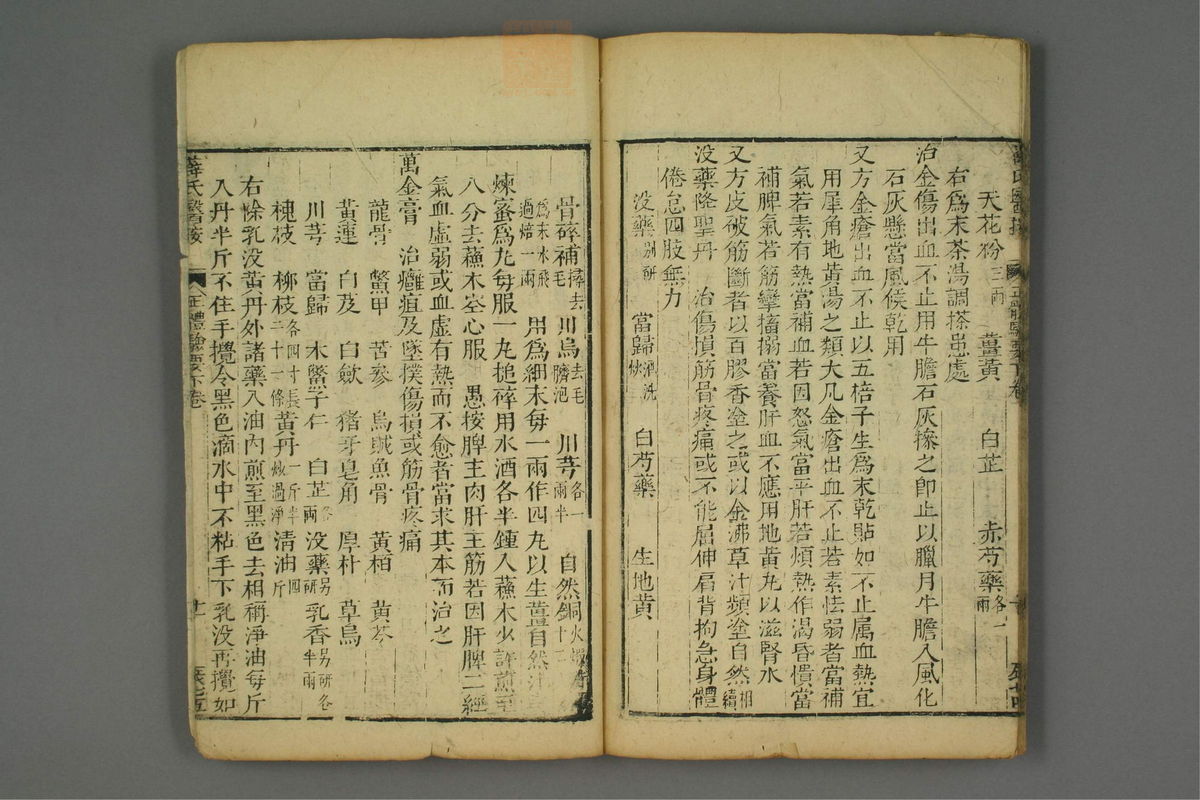 天花粉三兩 薑黃 白芷 赤芍藥各一兩
右爲末茶湯調搽患處
治金傷出血不止用牛膽石灰摻之卽止以臘月牛膽入風化
石灰懸當風候乾用
又方金瘡出血不止以五棓子生爲末乾貼如不止属血熱宜
用犀角地黃湯之類大凡金瘡出血不止若素怯弱者當補
氣若素有熱當補血若因怒氣當平肝若煩熱作渴昏憒當
補脾氣若筋攣搐搦當養肝血不應用地黃丸以滋腎水
又方皮破筋斷者以百膠香塗之或以金沸草汁頻塗自然相續
没藥降聖丹 治傷損筋骨疼痛或不能屈伸肩背拘急身體
倦怠四肢無力
没藥别研 當歸酒洗炒 白芍藥 生地黃
骨碎補撏去毛 川烏去毛臍泡 川芎各一兩半 自然銅火煅十二
爲末水飛過焙一兩 用爲細末每一兩作四丸以生薑自然汁
煉蜜爲丸每服一丸槌碎用水酒各半鍾入蘇木少許煎至
八分去蘇木空心服 愚按脾主肉肝主筋若因肝脾二經
氣血虛弱或血虛有熱而不愈者當求其本而治之
萬金膏 治癰疽及墜撲傷損或筋骨疼痛
龍骨 鱉甲 苦參 烏贼魚骨 黃栢 黃芩
黃連 白芨 白斂 猪牙皂角 厚朴 草烏
川芎 當歸 木鱉子仁 白芷各一兩 没藥另研 乳香另研各半兩
槐枝 柳枝各四寸長二十一條 黃丹一斤半炒過淨 清油四斤
右除乳没黃丹外諸藥入油內煎至黑色去柤稱淨油每斤
入丹半斤不住手攪令黑色滴水中不粘手下乳没再攪如
薛氏醫按 正體類要下卷